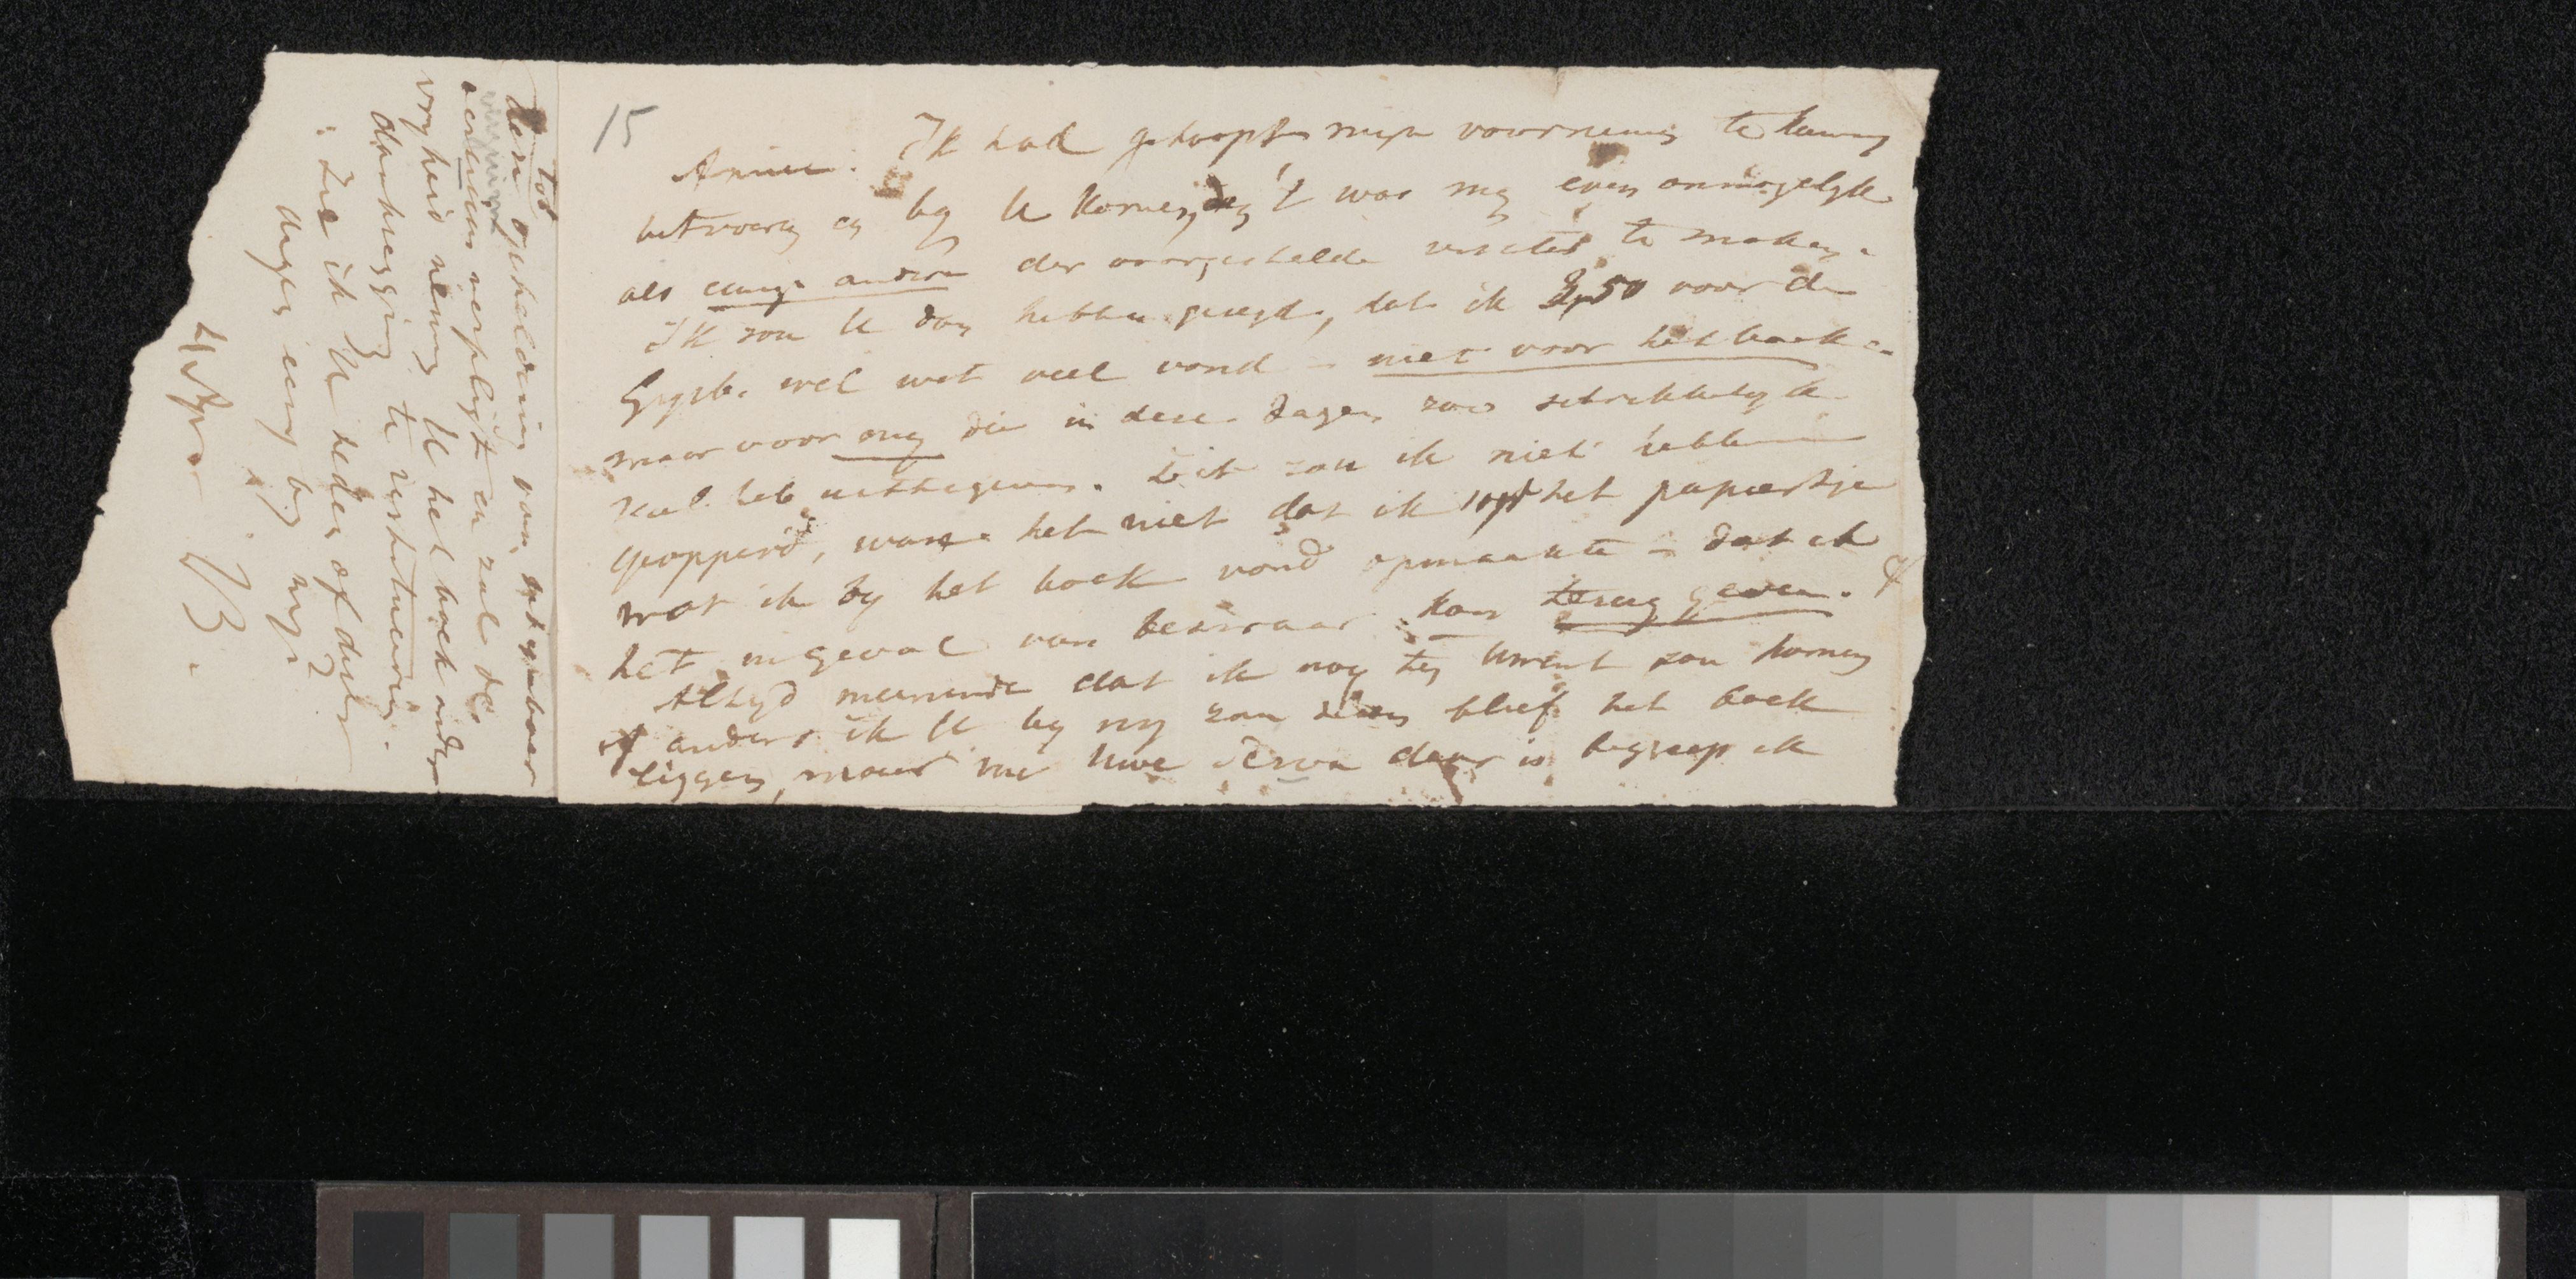 15
Amice. Ik had gehoopt mijn voornemen te kunnen
uitvoeren en by U komen, 't was my even onmogelijk
als eenige andere der voorgestelde visites te maken.
Ik zou U dan hebben gezegd, dat ik 3,50 voor de
wel wat veel vond – niet voor het boek –
maar voor ons die in deze dagen zoo schrikkelyk
veel heb uittegeven. Dit zou ik niet hebben
geopperd, ware het niet dat ik uit het papiertje
wat ik by het boek vond opmaakte – dat ik
het ingeval van bezwaar kon terug geven.
Altyd meenende dat ik nog ten Uwent zou komen
of anders ik U by my zou zien bleef het boek
liggen, maar nu Uwe daar is begreep ik
tot
den opheldering van
verpligt en zal de
vryheid nemen U het boek onder
dankzegging te restitueeren.
Zie ik U heden of dezer
dagen eens by my?
B.